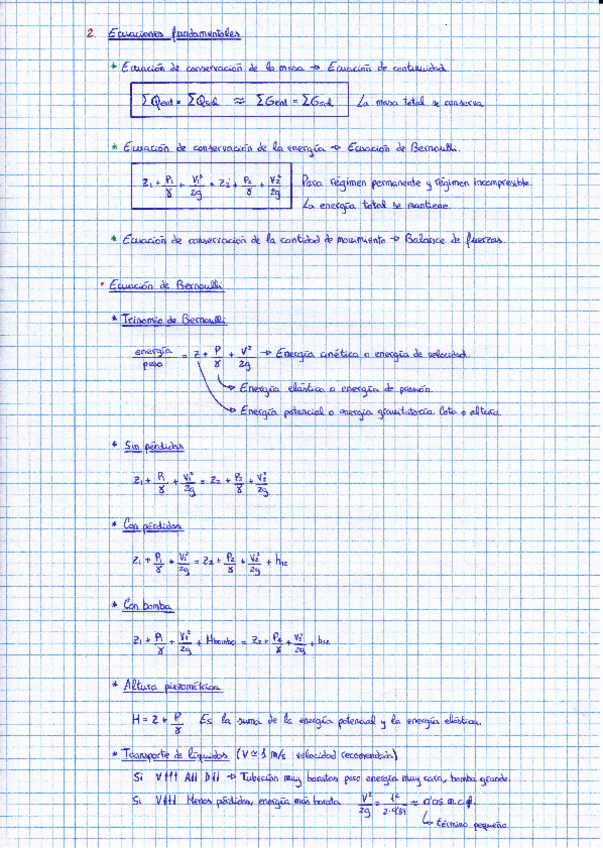 2. Ecuaciones fundamentales
* Ecuación de conservación de la masa → Ecuación de continuidad.
ΣQent = ΣQsal ≈ ΣGent = ΣGsal La masa total se conserva.
* Ecuación de conservación de la energía → Ecuación de Bernoulli.
Z1 + P1/γ + V1²/2g = Z2 + P2/γ + V2²/2g Para régimen permanente y régimen incompresible.
La energía total se mantiene.
* Ecuación de conservación de la cantidad de movimiento → Balance de fuerzas.
• Ecuación de Bernoulli
* Trinomio de Bernoulli
energía/peso = Z + P/γ + V²/2g → Energía cinética o energía de velocidad.
Energía elástica o energía de presión.
Energía potencial o energía gravitatoria. Cota o altura.
* Sin pérdidas
Z1 + P1/γ + V1²/2g = Z2 + P2/γ + V2²/2g
* Con pérdidas
Z1 + P1/γ + V1²/2g = Z2 + P2/γ + V2²/2g + h12
* Con bomba
Z1 + P1/γ + V1²/2g + Hbomba = Z2 + P2/γ + V2²/2g + h12
* Altura piezométrica
H = Z + P/γ Es la suma de la energía potencial y la energía elástica.
* Transporte de líquidos (V ≃ 1 m/s velocidad recomendada)
Si V↑↑↑ A↓↓ D↓↓ → Tuberías muy baratas pero energía muy cara, bomba grande.
Si V↓↓↓ Menos pérdidas, energía más barata. V²/2g = 1²/2·9'81 ≈ 0'05 m.c.f.
↳ término pequeño